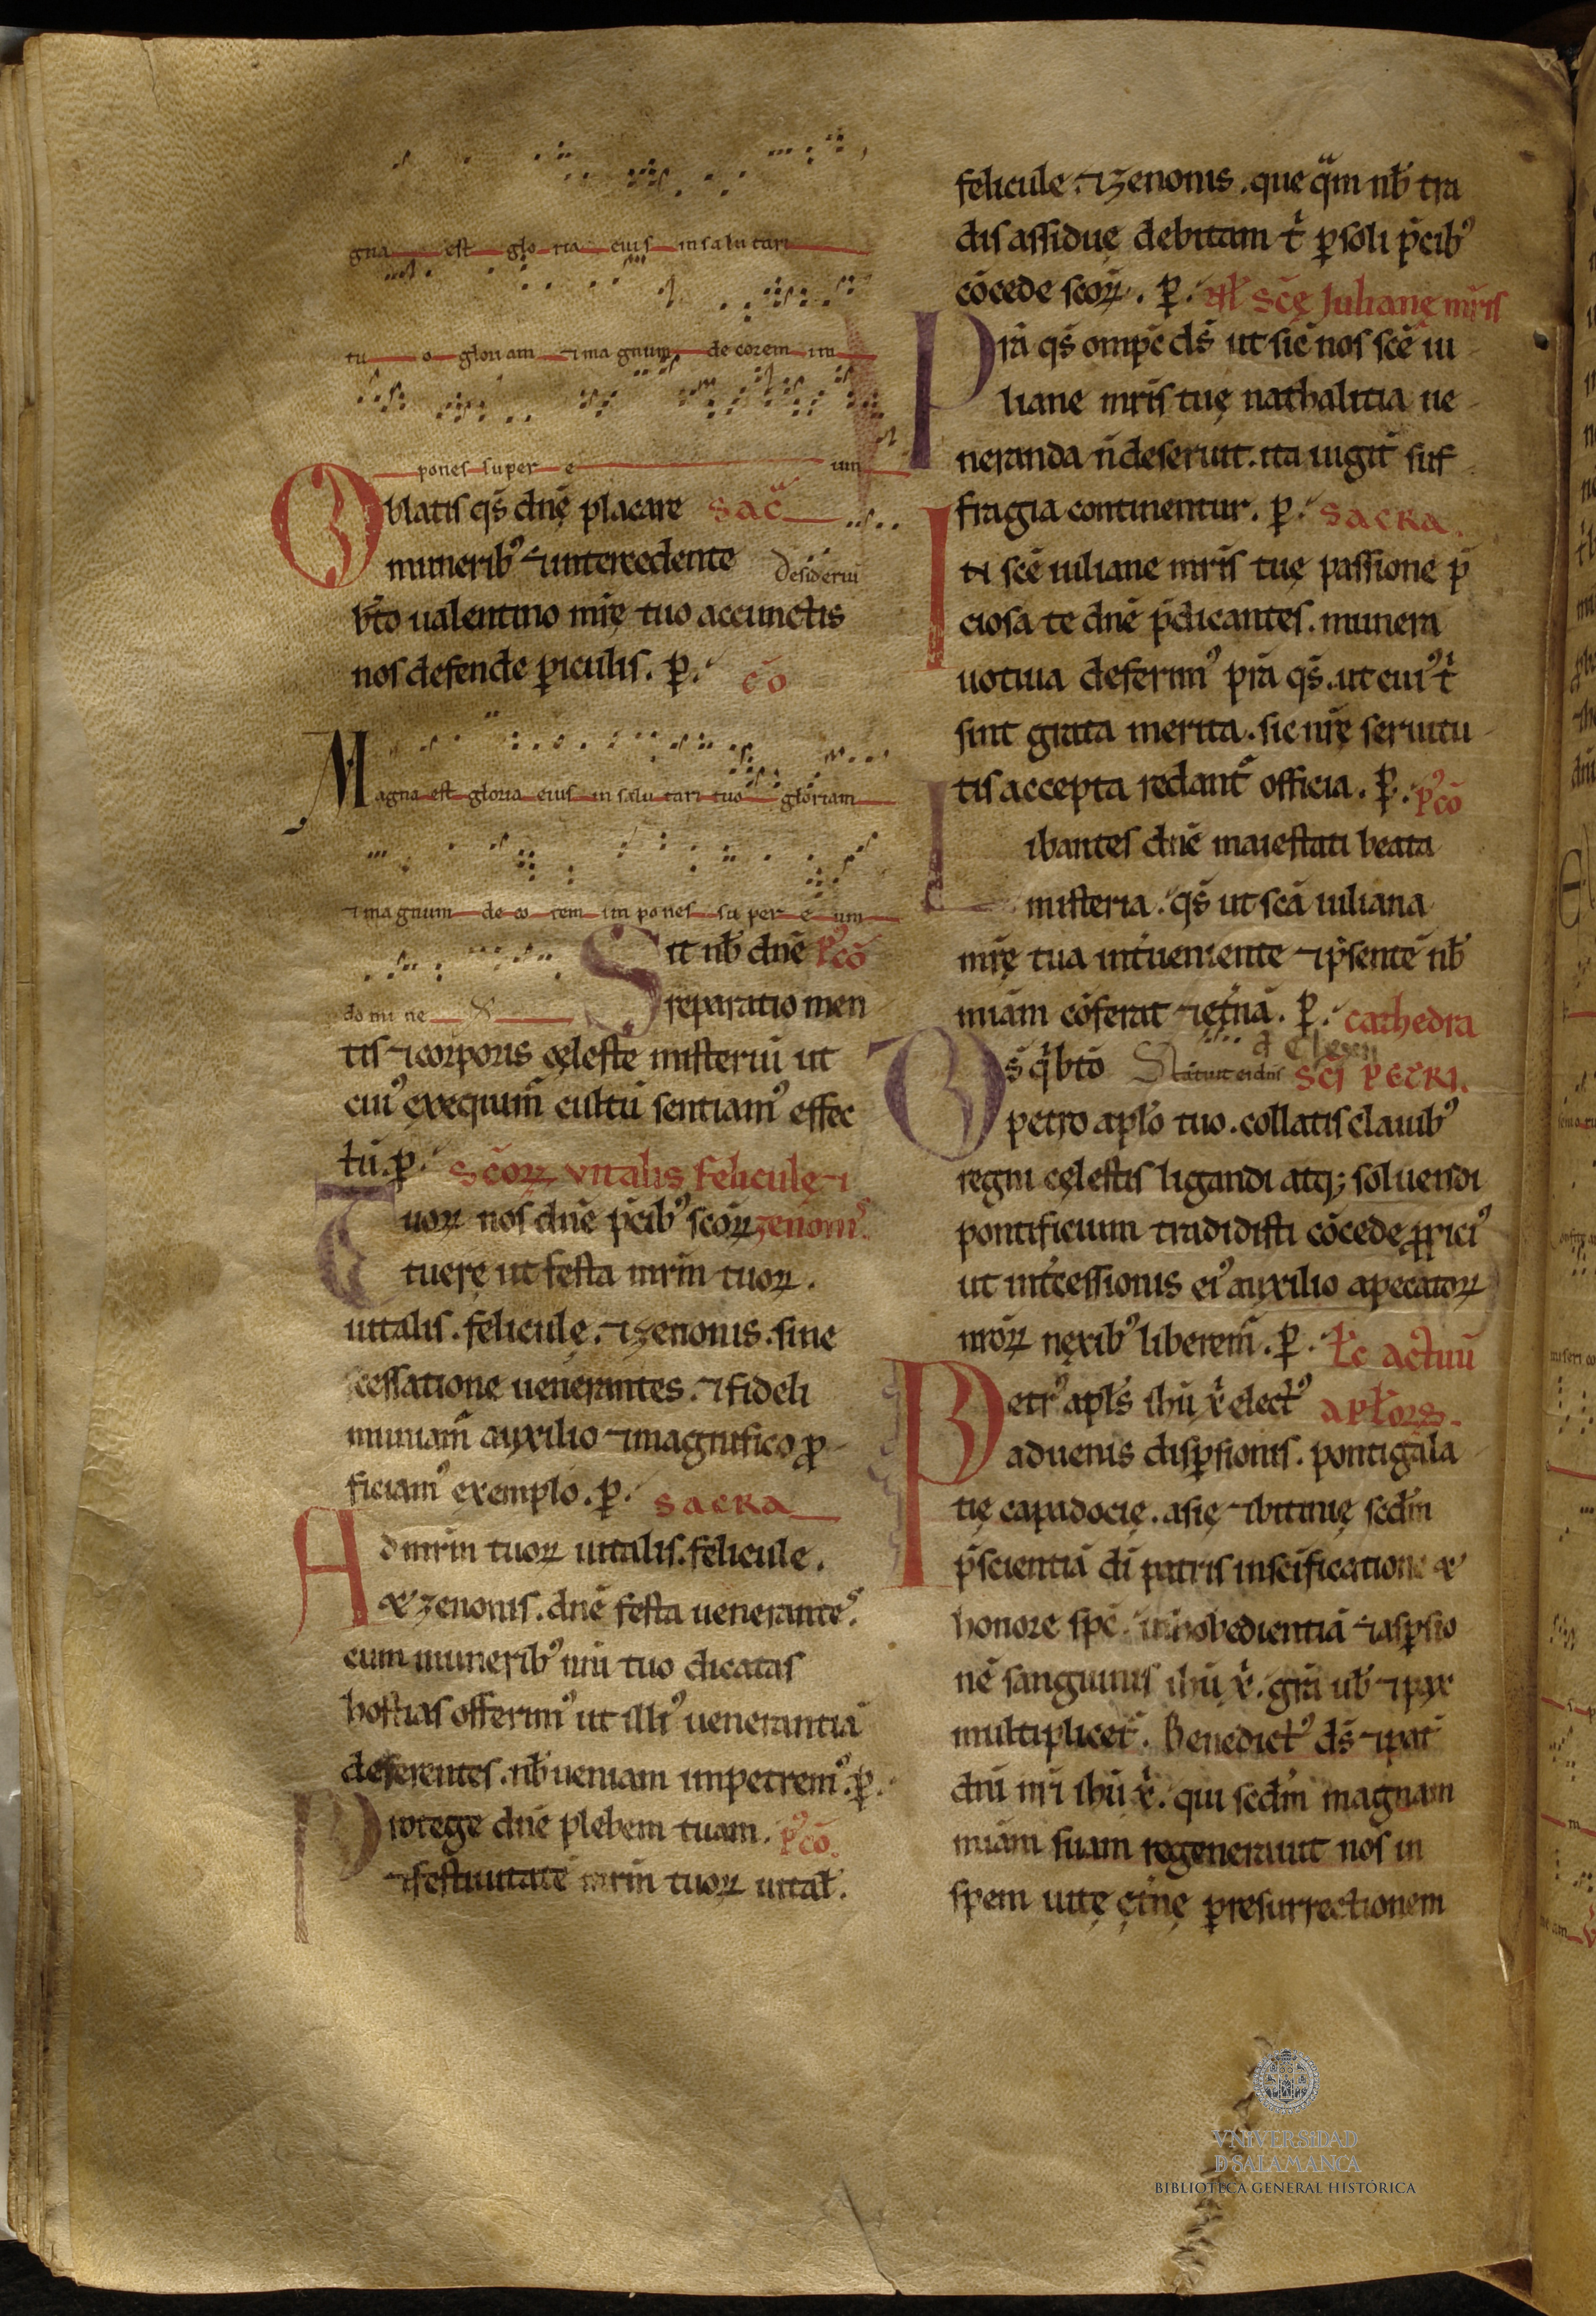 gna est glo ria eius in salu tari
tu o gloriam ⁊ma gnum. de corem im
pones super e um
Oblatis q̄s dn̄ę placare sac̄
munerib᾽ ⁊intercedente Desideriū
b̄to ualentino mr̄ę tuo accunctis
nos defende ꝑiculis. ꝑ. cō
Magna est gloria eius in salu tari tuo gloriam
⁊ma gnum de co rem im pones su per e um
do mi ne Sit nb̄ dn̄ē p᾽cō
reparatio men
tis ⁊corporis cęleste misteriū ut
cui᾽ exequim̄ cultū sentiam᾽ effec
tū. ꝑ. Scōꝝ vitalis felicule ⁊
Tuoꝝ nos dn̄ē p̄cib᾽ scōꝝ zenonis.
tuerę ut festa mr̄m tuoꝝ.
uitalis. felicule. ⁊zenonis. sine
cessatione uenerantes. ⁊fideli
muniam̄ auxilio ⁊magnifico ꝓ
ficiam᾽ exemplo. ꝑ. sacra
Ad mr̄m tuoꝝ uitalis. felicule.
& zenonis. dn̄ē festa uenerante᾽.
cum munerib᾽ nn̄i tuo dicatas
hostias offerim᾽ ut illi᾽ uenerantiā
deferentes. nb̄ ueniam impetrem᾽. ꝑ.
Protege dn̄ē plebem tuam. p᾽cō.
⁊festiuitate mr̄m tuoꝝ uital̄.
felicule. ⁊zenonis. que q̄m nb̄ tra
dis assidue debitam t̄ ꝑsoli p̄cib᾽
cōcede scōꝝ. ꝑ. nt̄l scę Iulianę mr̄is
Prā q̄s omp̄ē ds̄ ut sic̄ nos scē iu
liane mr̄is tuę nathalitia ue
neranda n̄ deserunt. ita iugit̄ suf
fragia continentur. ꝑ. sacra.
IN scē iuliane mr̄is tuę passione p̄
ciosa te dn̄ē p̄dicantes. munera
uotiua deferim᾽ prā q̄s. ut cui᾽ t̄
sint grata merita. sic nr̄ę seruitu
tis accepta redant̄ officia. ꝑ. p᾽cō
Libantes dn̄ē maiestati beata
misteria. q̄s ut scā iuliana
mr̄ę tua int̄ueniente ⁊p̄sentē nb̄
miām cōferat ⁊ęt̄nā. ꝑ. cathedra
Os̄ q̄ bt̄o Statuit ei dn̄s scī petri.
petro apl̄o tuo. collatis clauib᾽
regni cęlestis ligandi atq; soluendi
pontificium tradidisti cōcede ꝓprici᾽
ut int̄cessionis ei᾽ auxilio apecatoꝝ
nr̄oꝝ nexib᾽ liberem̄. ꝑ. Lc̄ actuū
Petr᾽ apl̄s ihū x̄ elect᾽ apl̄oꝝ.
aduenis disꝑsionis. ponti gala
tię capadocię. asię ⁊bitinię scdm̄
p̄scientiā dī patris in scīficatione &
honore sp̄c. inhobedientiā ⁊asꝑsio
nē sanguinis ihū x̄. grā ub̄ ⁊pax
multiplicet̄. Benedict᾽ ds̄ ⁊pat̄
dn̄i nr̄i ihū x̄. qui scdm̄ magnam
miām suam regenerauit nos in
spem uitę ęt̄nę ꝑ resurrectionem
VNIVERSIDAD
D SALAMANCA
BIBLIOTECA GENERAL HISTÓRICA